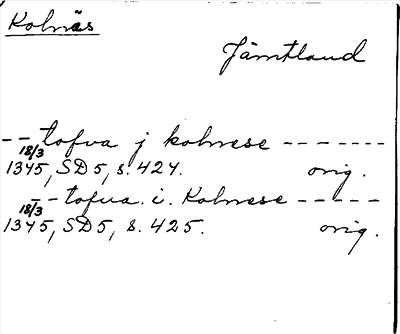 Kolnäs
Jämtland
-- tofva j kolnese -------
18/3
1345, SD5, s. 424. orig.
-- tofva. i. Kolnese -----
18/3
1345, SD5, s. 425. orig.